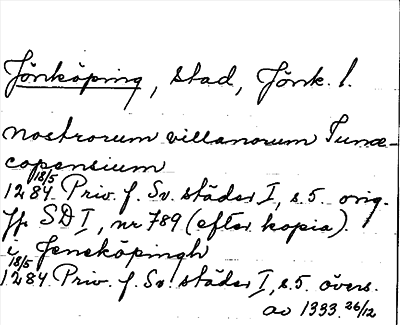 Jönköping, stad, Jönk. l.
nostrorum villanorum Junæ-
copensium
18/5
1284 Priv. f. Sv. städer I, s. 5 orig.
jfr SD I, nr 789 (efter kopia).
i Jeneköpingh
18/5
1284 Priv. f. Sv. städer I, s. 5 övers.
av 1333 26/12